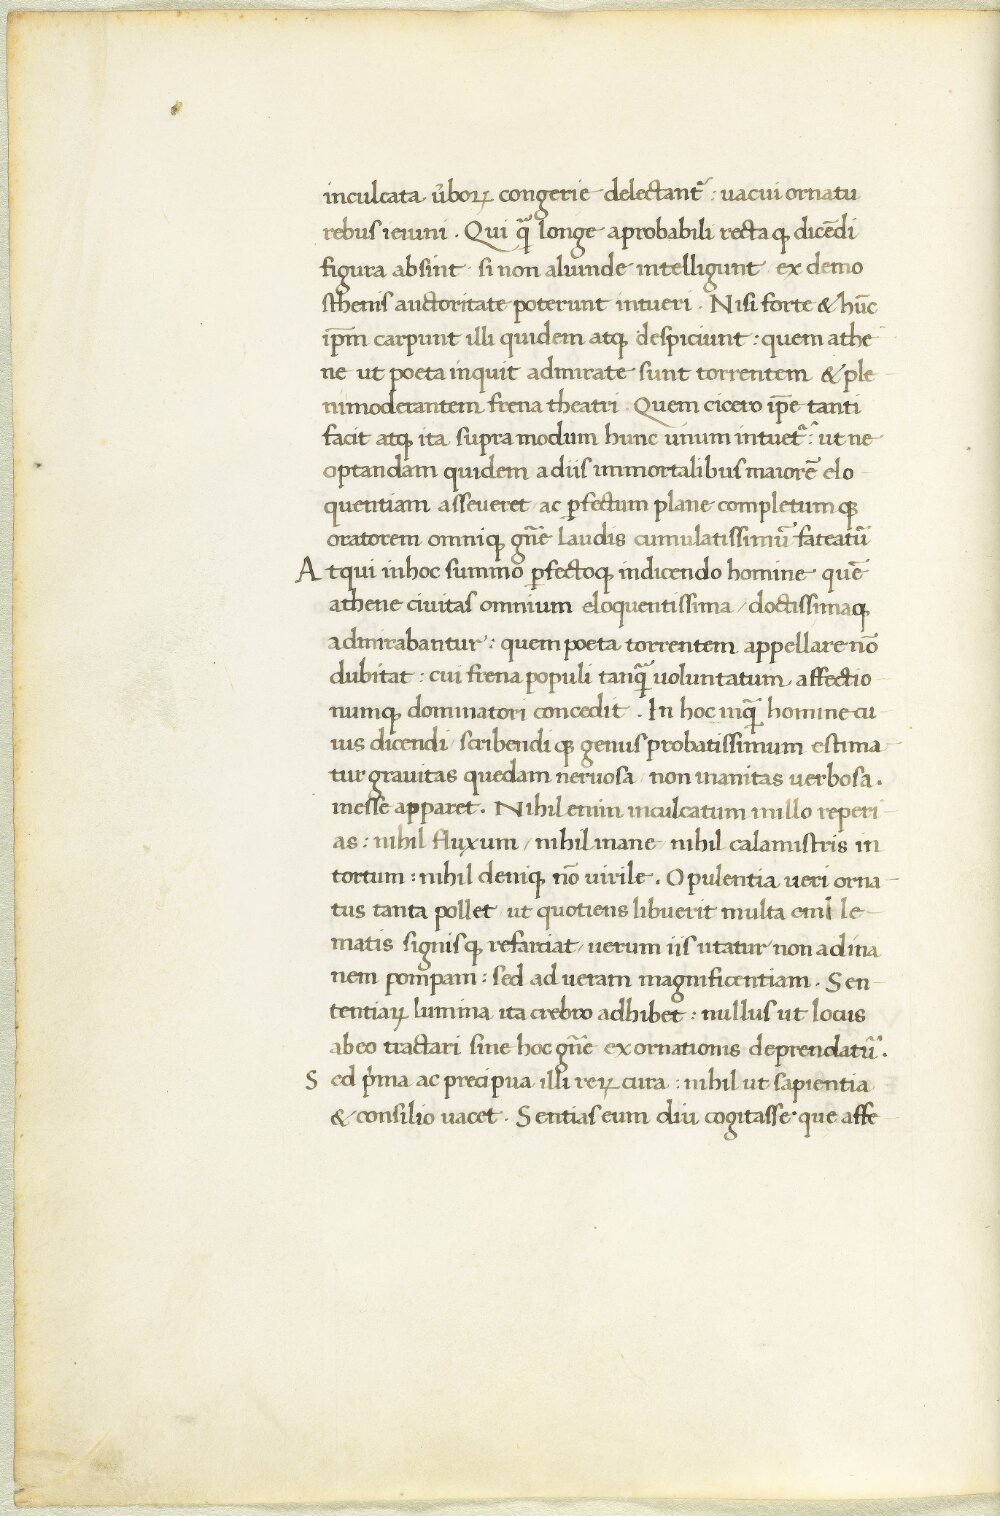 inculcata ũboꝝ congerie delectantʳ : uacui ornatu
rebus ieiuni . Qui qͣ̃ longe aprobabili recta qꝫ dicẽdi
figura absint si non aliunde intelligunt ex demo
sthenis auctoritate poterunt intueri . Nisi forte & hũc
ip̃m carpunt illi quidem atqꝫ despiciunt : quem athe
ne ut poeta inquit admirate sunt torrentem & ple-
nimoderantem frena theatri . Quem cicero ip̃e tanti
facit atqꝫ ita supra modum hunc unum intuetʳ : ut ne-
optandam quidem adiis immortalibus maiorẽ elo-
quentiam asseueret ac ꝑfectum plane completum qꝫ
oratorem omniqꝫ gñe laudis cumulatissimũ fateatʳ
Atqui inhoc summo ꝑfectoqꝫ indicendo homine quẽ
athene ciuitas omnium eloquentissima / doctissimaqꝫ
admirabantur : quem poeta torrentem appellare nõ
dubitat : cui frena populi tanqͣ̃ uoluntatum affectio
numqꝫ dominatori concedit . In hoc inqͣ̃ homine cu
ius dicendi / scribendi qꝫ genus probatissimum estima-
tur grauitas quedam neruosa / non inanitas uerbosa .
inesse apparet . Nihil enim inculcatum inillo reperi-
as : nihil fluxum / nihil inane nihil calamistris in
tortum : nihil deniqꝫ nõ uirile . Opulentia ueri orna-
tus tanta pollet ut quotiens libuerit multa emble-
matis signisqꝫ refarciat / uerum iis utatur non ad ina
nem pompam : sed ad ueram magnificentiam . Sen-
tentiaꝝ lumina ita crebro adhibet : nullus ut locus
abeo tractari sine hoc gñe exornationis deprendatʳ .
Sed pͥma ac precipua illi reꝝ cura : nihil ut sapientia
& consilio uacet . Sentias eum diu cogitasse que affe-